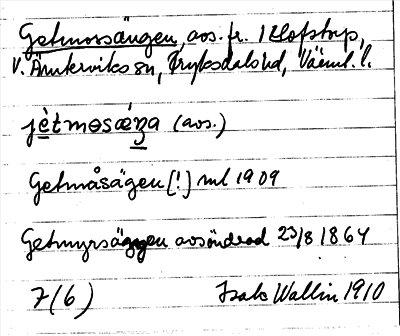 Getmossängen, avs. fr. 1 Klofstorp,
V. Ämterviks sn, Fryksdals hd, Värml. l.
jètmosæŋa (avs.)
Getmåsägen [!] ml 1909
Getmyrsängen avsöndrad 23/8 1864
7(6) Isak Wallin 1910